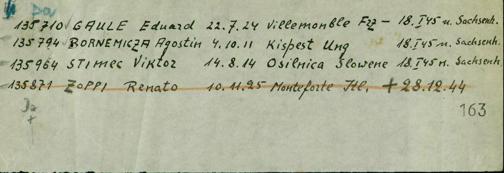 Da
135710 GAULE Eduard 22.7.24 Villemomble Frz – 18.I 45 n. Sachsenh.
135794 BORNEMICZA Agostin 4.10.11 Kispest Ung 18.I 45 n. Sachsenh.
135964 STIMEC Viktor 14.8.14 Osilnica Slowene 18.I 45 n. Sachsenh.
135871 ZOPPI Renato 10.11.25 Monteforte Itl. + 28.12.44
Da
+
163